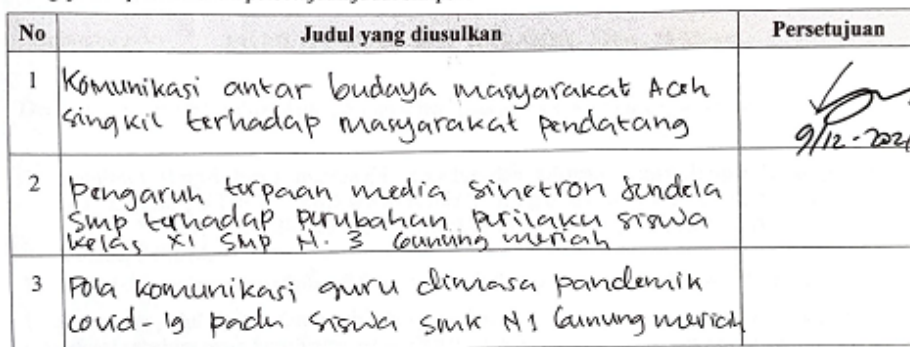 No Judul yang diusulkan Persetujuan
1 Komunikasi antar budaya masyarakat Aceh
singkil terhadap masyarakat pendatang
9/12-2021
2 pengaruh terpaan media sinetron Jendela
Smp terhadap perubahan prilaku siswa
kelas XI SMP N. 3 Gunung meriah
3 Pola komunikasi guru dimasa pandemik
covid-19 pada siswa smk N1 Gunung meriah